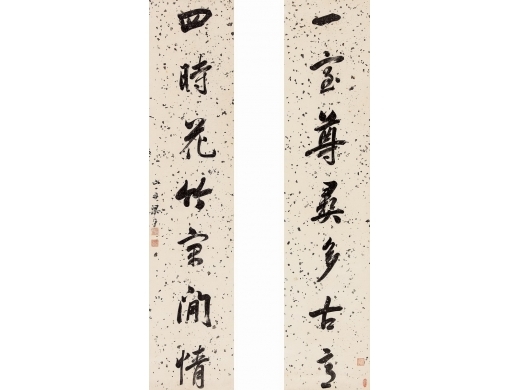 一室尊彝多古意
四時花竹寄閒情